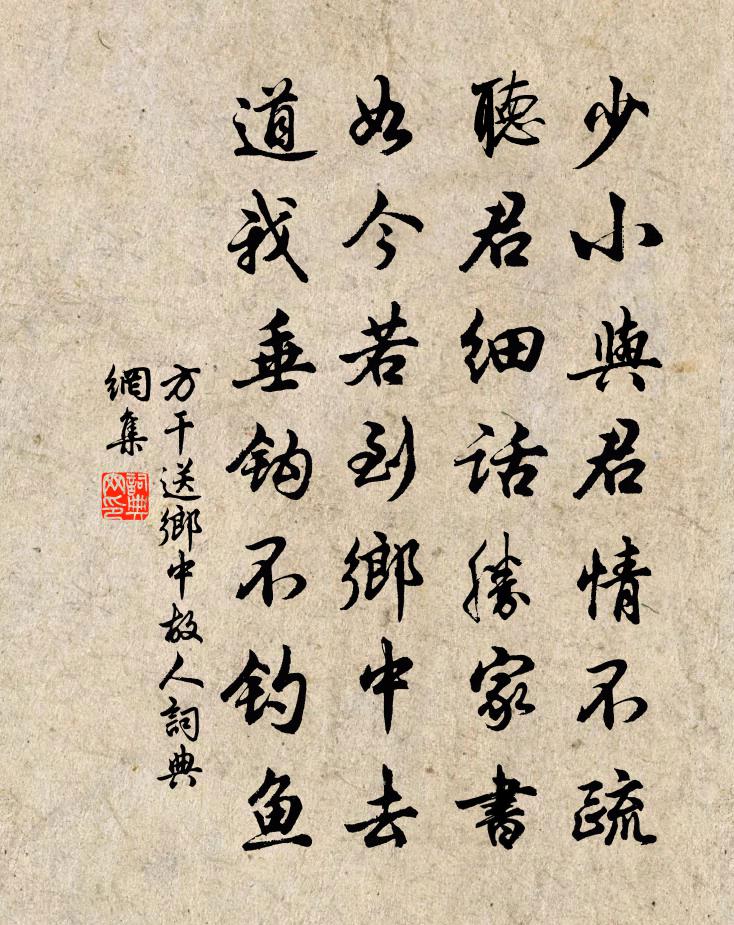 少小與君情不疏
聽君細話勝家書
如今若到鄉中去
道我垂鉤不釣魚
方干送鄉中故人詞典
網集
詞典
網印